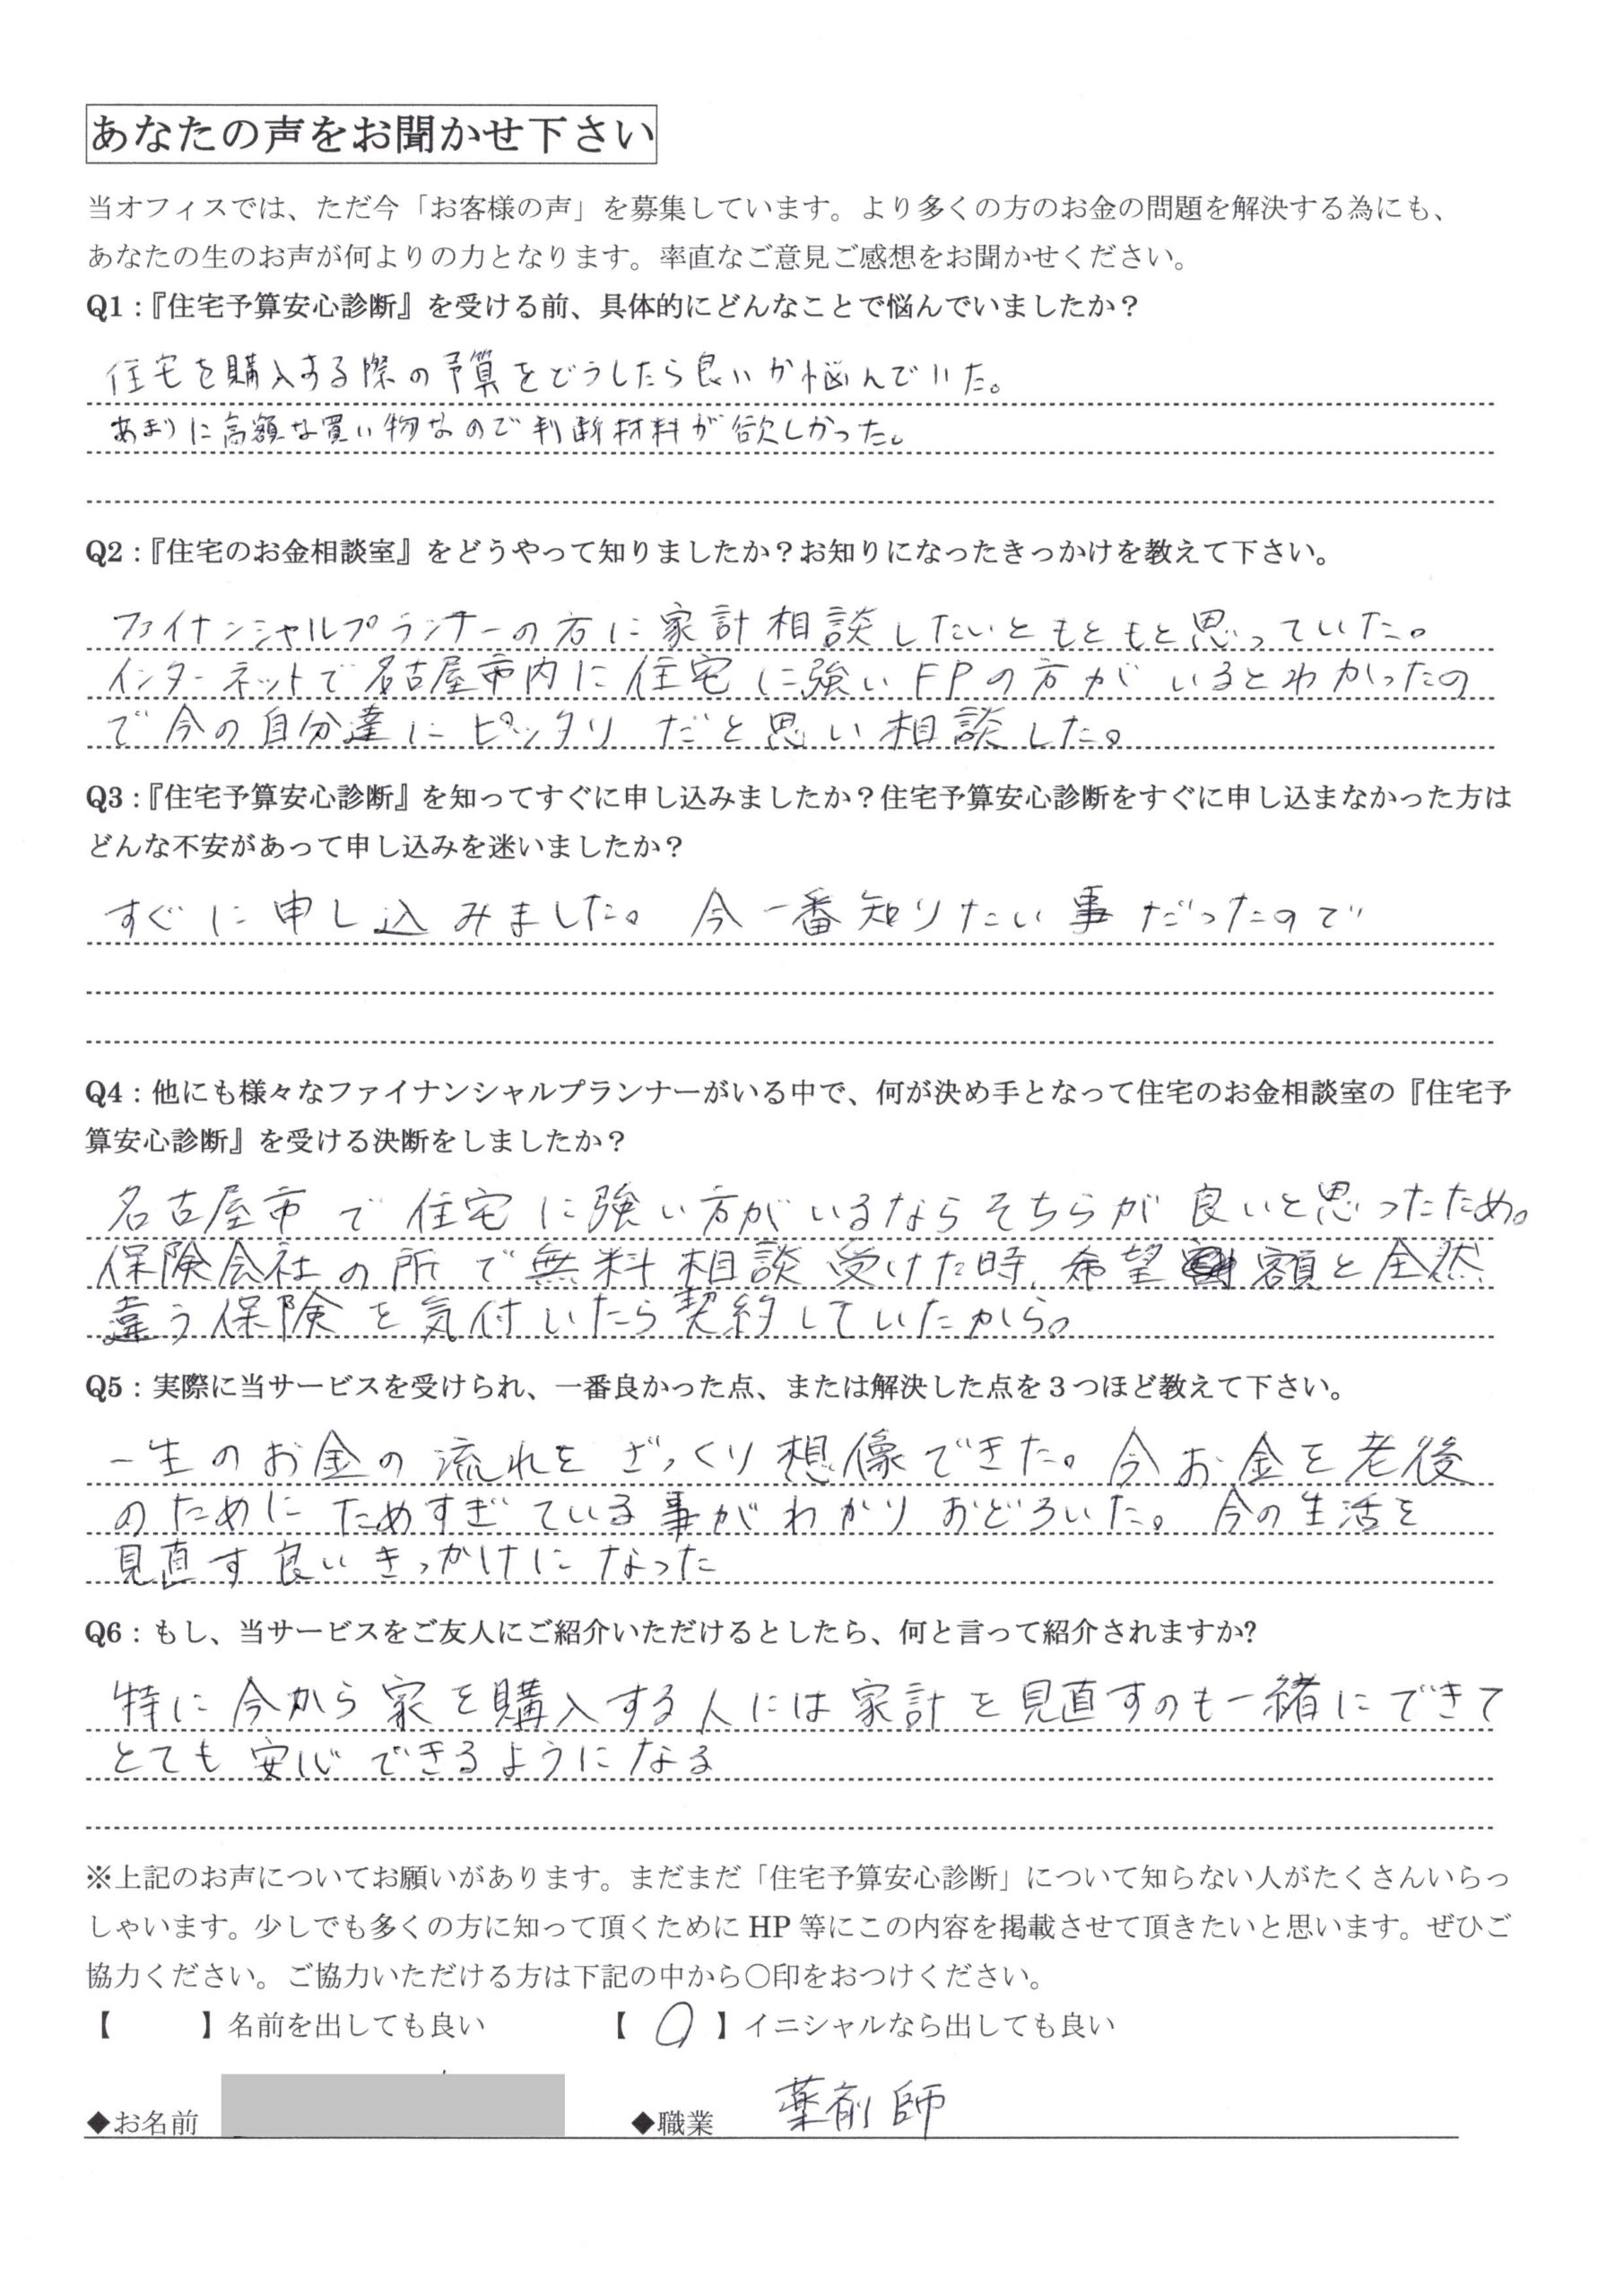 あなたの声をお聞かせ下さい
当オフィスでは、ただ今「お客様の声」を募集しています。より多くの方のお金の問題を解決する為にも、
あなたの生のお声が何よりの力となります。率直なご意見ご感想をお聞かせください。
Q1：『住宅予算安心診断』を受ける前、具体的にどんなことで悩んでいましたか？
住宅を購入する際の予算をどうしたら良いか悩んでいた。
あまりに高額な買い物なので判断材料が欲しかった。
Q2：『住宅のお金相談室』をどうやって知りましたか？お知りになったきっかけを教えて下さい。
ファイナンシャルプランナーの方に家計相談したいともともと思っていた。
インターネットで名古屋市内に住宅に強いFPの方がいるとわかったの
で今の自分達にピッタリだと思い相談した。
Q3：『住宅予算安心診断』を知ってすぐに申し込みましたか？住宅予算安心診断をすぐに申し込まなかった方は
どんな不安があって申し込みを迷いましたか？
すぐに申し込みました。今一番知りたい事だったので
Q4：他にも様々なファイナンシャルプランナーがいる中で、何が決め手となって住宅のお金相談室の『住宅予
算安心診断』を受ける決断をしましたか？
名古屋市で住宅に強い方がいるならそちらが良いと思ったため。
保険会社の所で無料相談受けた時、希望額と全然
違う保険を気付いたら契約していたから。
Q5：実際に当サービスを受けられ、一番良かった点、または解決した点を３つほど教えて下さい。
一生のお金の流れをざっくり想像できた。今お金を老後
のためにためすぎている事がわかりおどろいた。今の生活を
見直す良いきっかけになった
Q6：もし、当サービスをご友人にご紹介いただけるとしたら、何と言って紹介されますか?
特に今から家を購入する人には家計を見直すのも一緒にできて
とても安心できるようになる
※上記のお声についてお願いがあります。まだまだ「住宅予算安心診断」について知らない人がたくさんいらっ
しゃいます。少しでも多くの方に知って頂くために HP 等にこの内容を掲載させて頂きたいと思います。ぜひご
協力ください。ご協力いただける方は下記の中から〇印をおつけください。
【　　】名前を出しても良い　【 〇 】イニシャルなら出しても良い
◆お名前　◆職業　薬剤師